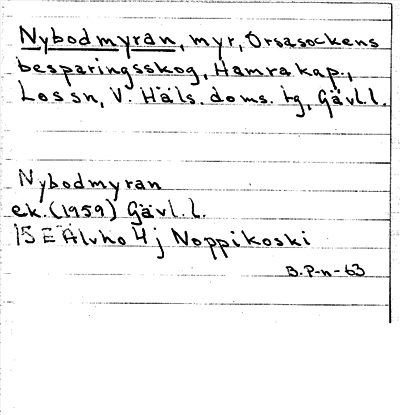 Nybodmyran, myr, Orsasockens
besparingsskog, Hamra kap.,
Los sn, V. Häls. doms. tg, Gävl. l.
Nybodmyran
ek. (1959) Gävl. l.
15 E Älvho 4 j Noppikoski
B. P-n-63